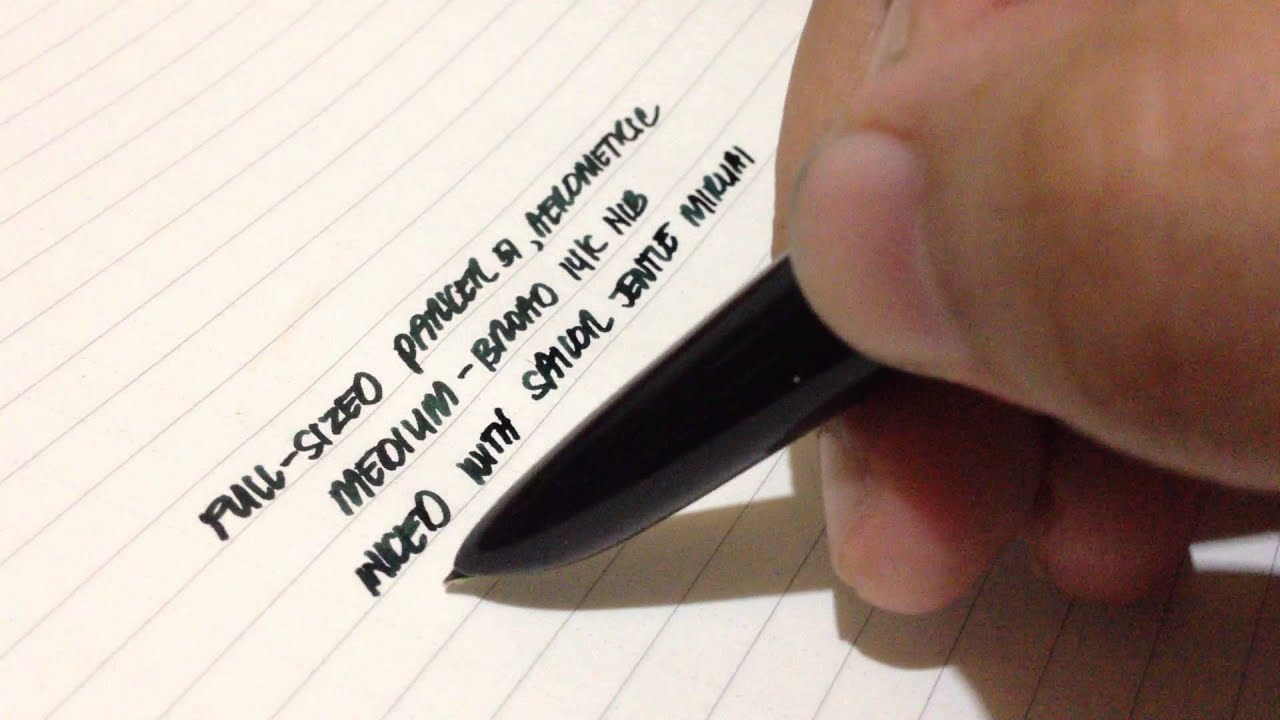 FULL-SIZED PARKER 51, AEROMETRIC
MEDIUM-BROAD 14K NIB
INKED WITH SAILOR JENTLE MIRUAI